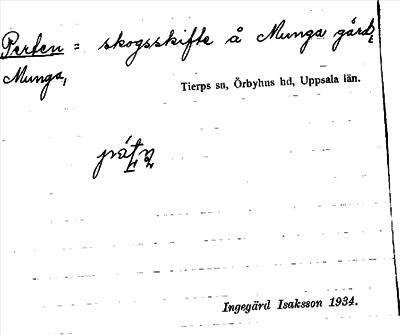 Perten = skogsskifte å Munga gårdr
Munga,
Tierps sn, Örbyhus hd, Uppsala län.
Ingegärd Isaksson 1934.